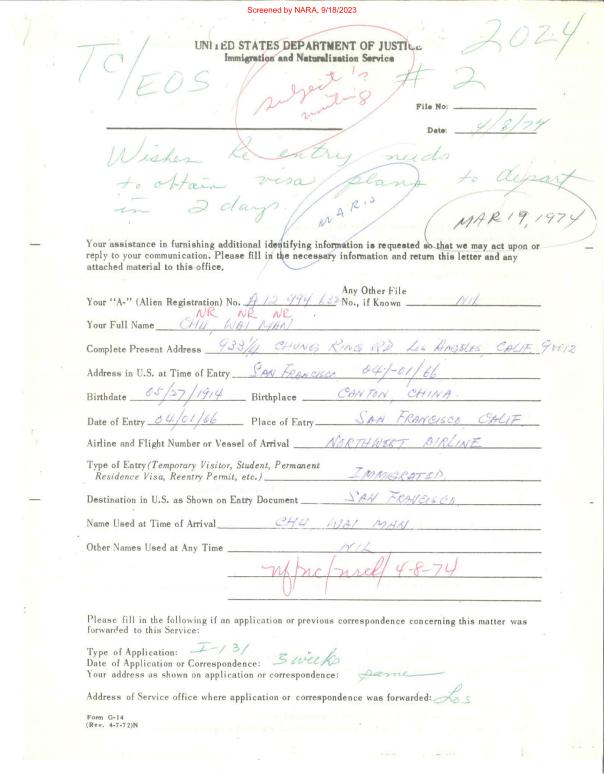 Screened by NARA, 9/18/2023
2024
TC/EOS
UNITED STATES DEPARTMENT OF JUSTICE
Immigration and Naturalization Service
subject's
writing
# 2
File No:
Date: 4/8/74
Wishes Re entry needs
to obtain visa plans to depart
in 2 days.
MAR 19, 1974
Your assistance in furnishing additional identifying information is requested so that we may act upon or
reply to your communication. Please fill in the necessary information and return this letter and any
attached material to this office.
Any Other File
Your "A-" (Alien Registration) No. A 12 994 No., if Known NIL
NR NR NR
Your Full Name CHU, WAI MAN
Complete Present Address 933 1/4 CHUNG KING RD LOS ANGELES, CALIF. 90012
Address in U.S. at Time of Entry SAN FRANCISCO 04/01/66
Birthdate 05/27/1914 Birthplace CANTON, CHINA.
Date of Entry 04/01/66 Place of Entry SAN FRANCISCO CALIF
Airline and Flight Number or Vessel of Arrival NORTHWEST AIRLINE
Type of Entry (Temporary Visitor, Student, Permanent
Residence Visa, Reentry Permit, etc.) IMMIGRATED
Destination in U.S. as Shown on Entry Document SAN FRANCISCO
Name Used at Time of Arrival CHU WAI MAN
Other Names Used at Any Time NIL
nf/nc/nrel/ 4-8-74
Please fill in the following if an application or previous correspondence concerning this matter was
forwarded to this Service:
Type of Application: I-131
Date of Application or Correspondence: 3 weeks
Your address as shown on application or correspondence: same
Address of Service office where application or correspondence was forwarded: Los
Form G-14
(Rev. 4-7-72)N